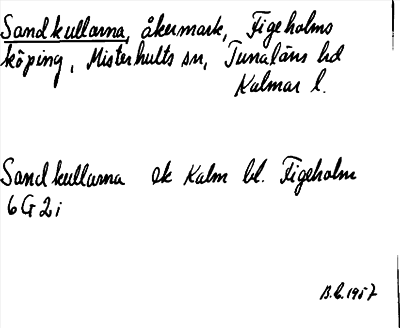 Sandkullarna, åkermark, Figeholms
köping, Misterhults sn, Tunaläns hd
Kalmar l.
Sandkullarna ek Kalm bl. Figeholm
6G2i
B.C. 1957